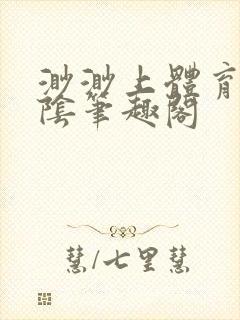 渺渺上體育
陰筆趣閣
慧/七里慧